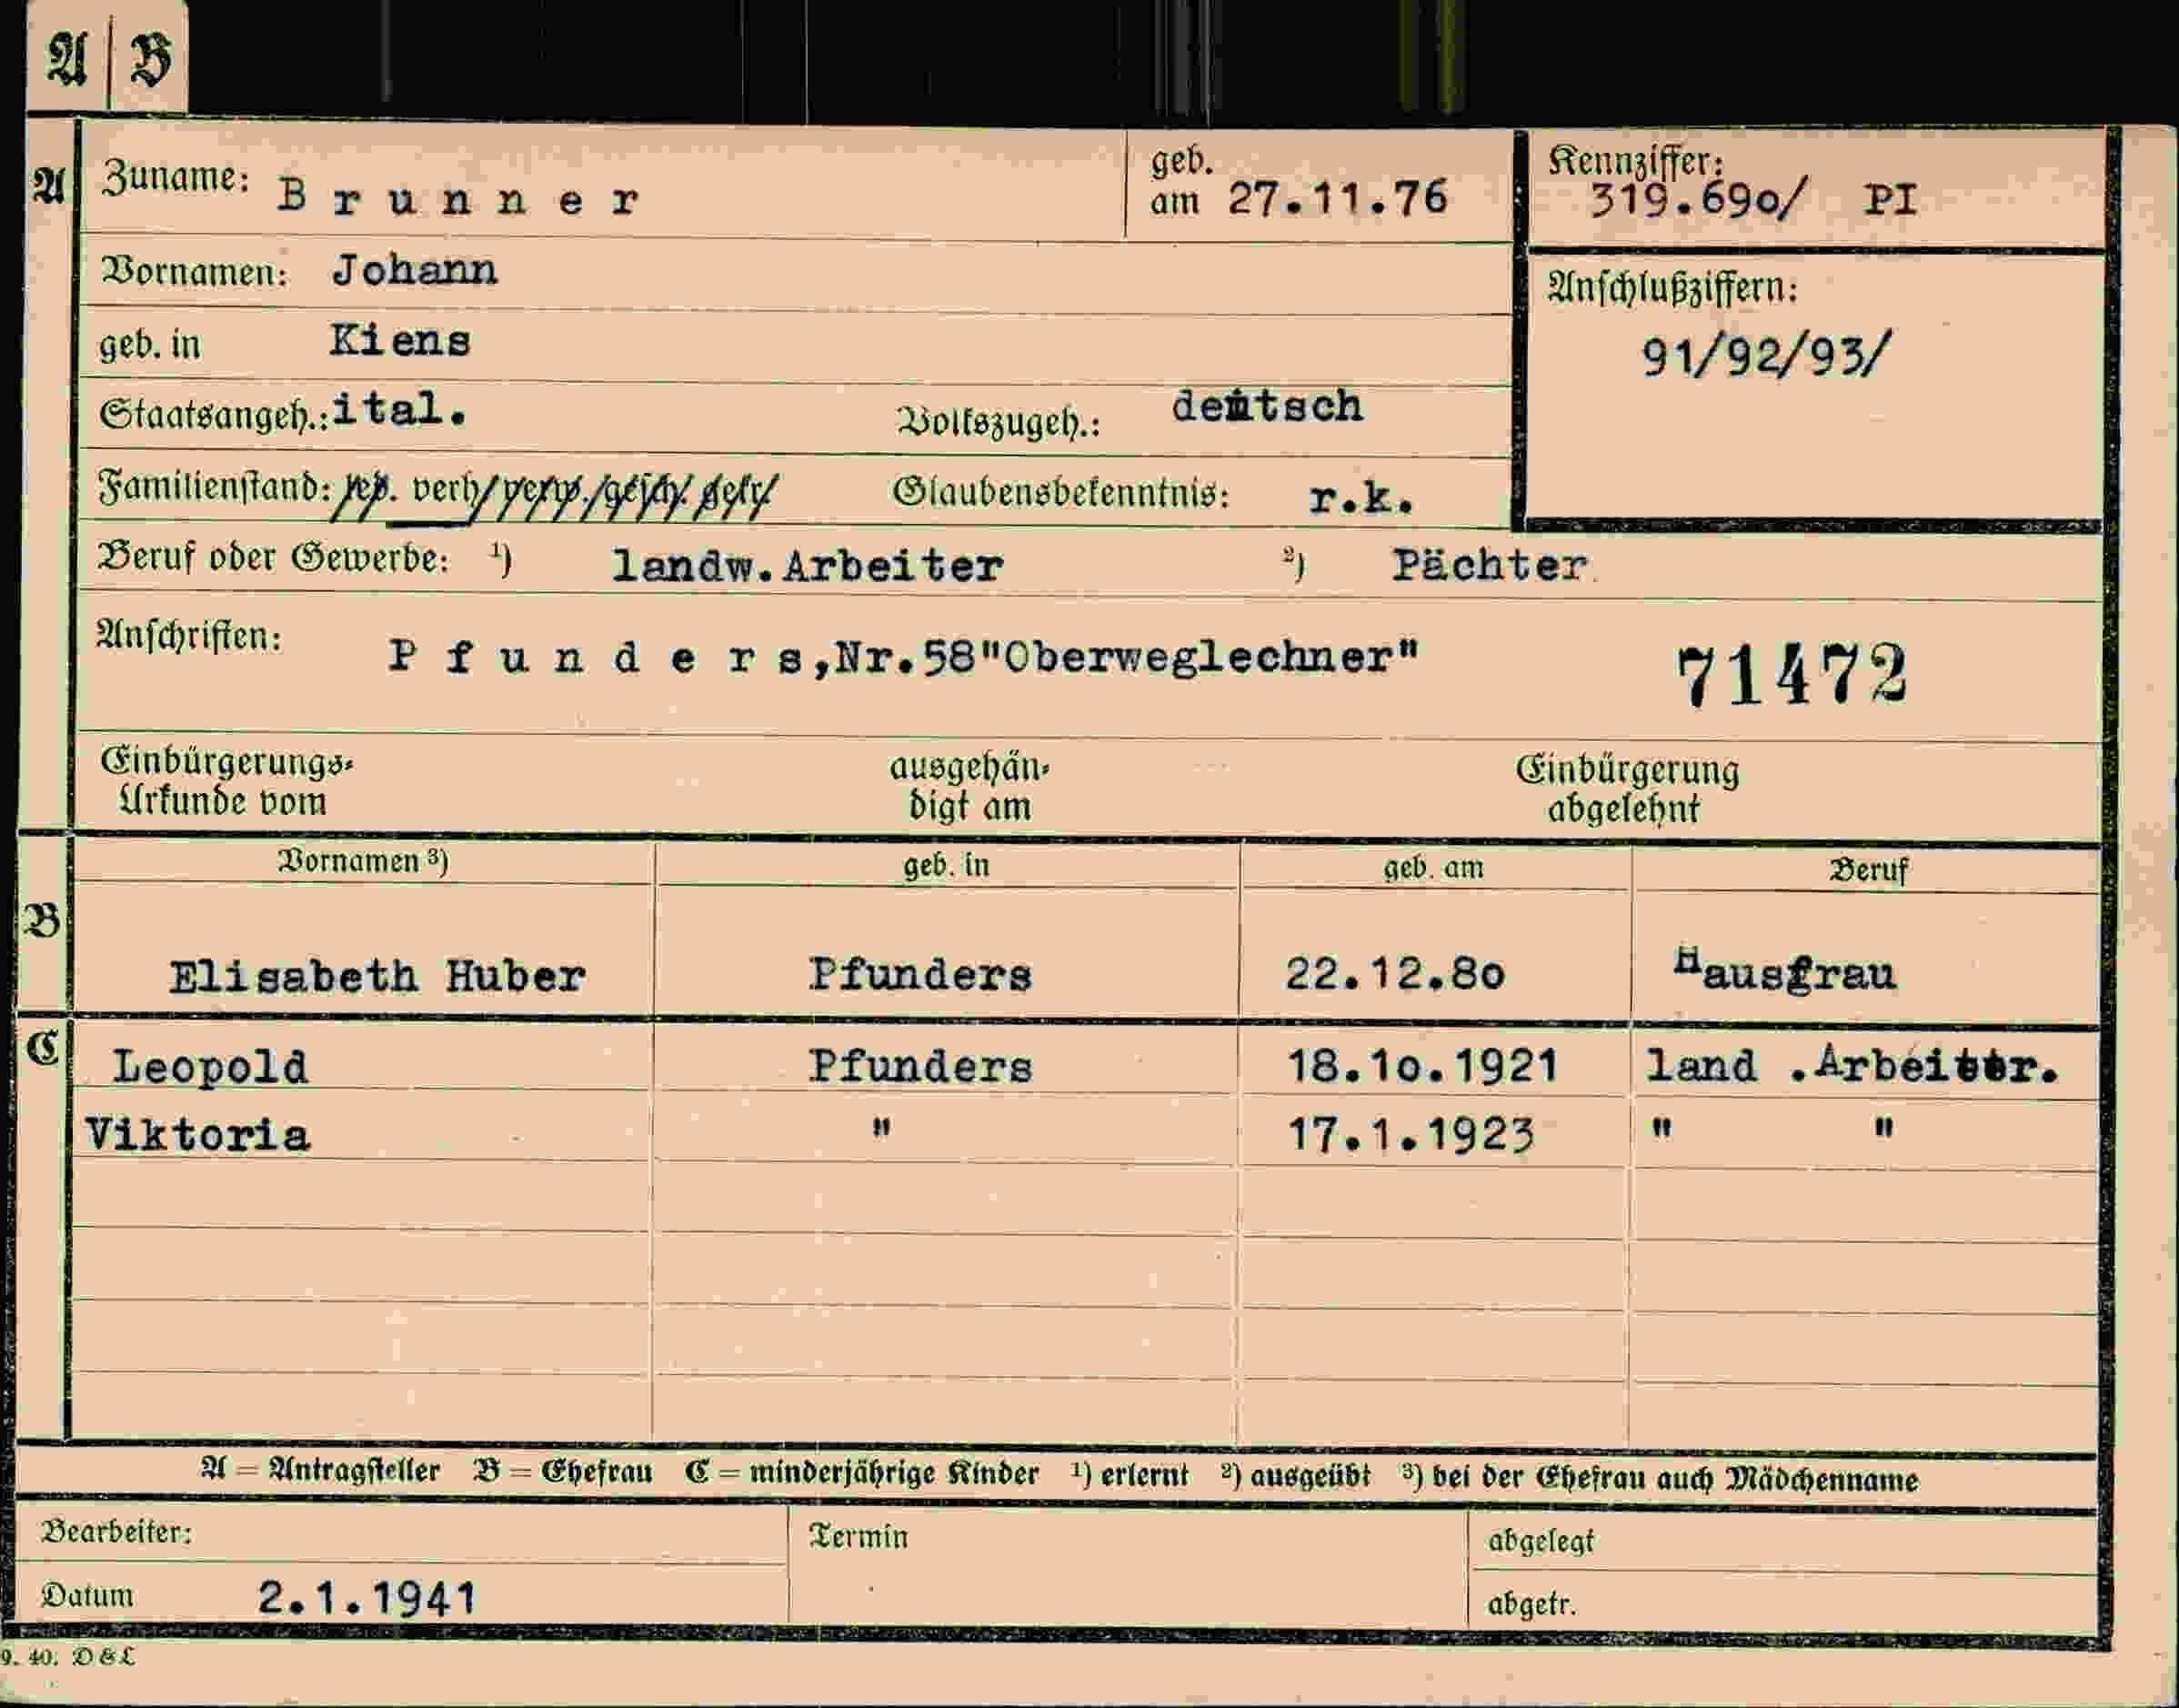 A B
A
Zuname: Brunner
geb. am 27.11.76
Kennziffer: 319.69o/ PI
Vornamen: Johann
Anschlußziffern:
91/92/93/
geb. in Kiens
Staatsangeh.: ital. Volkszugeh.: deutsch
Familienstand: led. verh/verw./gesch. getr/ Glaubensbekenntnis: r.k.
Beruf oder Gewerbe: 1) landw.Arbeiter 2) Pächter
Anschriften: Pfunders,Nr.58"Oberweglechner" 71472
Einbürgerungs-
Urkunde vom
ausgehän-
digt am
Einbürgerung
abgelehnt
B
Vornamen 3) geb. in geb. am Beruf
Elisabeth Huber Pfunders 22.12.8o Hausfrau
C
Leopold Pfunders 18.1o.1921 land .Arbeiter.
Viktoria " 17.1.1923 " "
A = Antragsteller B = Ehefrau C = minderjährige Kinder 1) erlernt 2) ausgeübt 3) bei der Ehefrau auch Mädchenname
Bearbeiter: Termin abgelegt
Datum 2.1.1941 abgetr.
9. 40. D & L